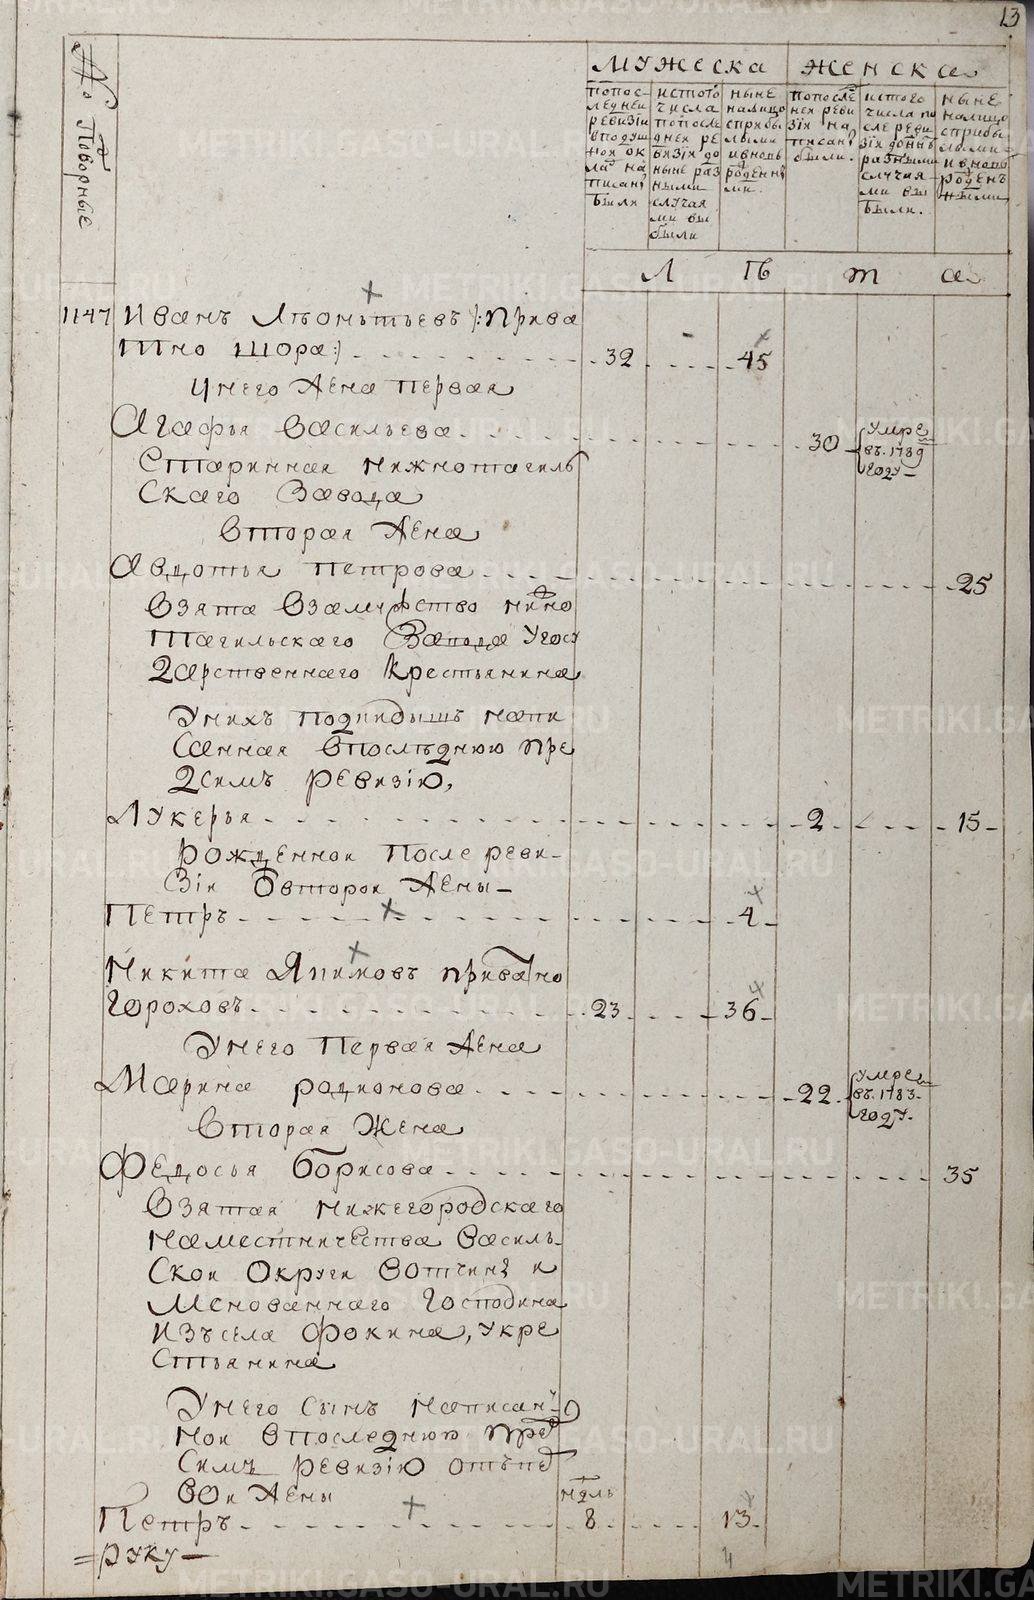 13
№ Подворные
МУЖЕСКА ЖЕНСКА
попос-
ледней
ревизіи
вподуш
ной ок
ладъ на
писаны
были
истого
числа
попосле
дней ре
визіи до
ныне раз
ными
случая
ми вы
были
ныне
налицо
сприбы
лыми
ивновь
рожденны
ми.
попосле
ней реви
зіи на
писаны
были.
истого
числа по
сле реви
зіи доннъ
разными
случая
ми вы
были.
ныне
налицо
сприбы
лыми
ивновь
рожденъ
ными
Л Ѣ Т А
1147 Иванъ Леонтьевъ /:прива
тно Шора:/ 32 45
Унего Жена первая
Агафья Васильева 30 Умре въ 1789 году
Старинная нижнотагиль
скаго Завода
Вторая Жена
Авдотья Петрова 25
Взята Взамужство нижно
тагильскаго Завода Угосу
дарственнаго крестьянина
Унихъ подкидышъ напи
санная Впоследнюю пре
дсимъ ревизію,
Лукерья 2 15
рожденной После реви-
зіи Отвторой Жены
Петръ 4
Никита Якимовъ приватно
Гороховъ 23 36
Унего Первая Жена
Марина родионова 22 Умре въ 1783 году
Вторая Жена
Федосья Борисова 35
Взятая нижегородскаго
наместничества Василь-
ской Округи Вотчины и
менованнаго Господина
изъ села Фокина, укре
стьянина
Унего сынъ написан-
ной Впоследнюю пред
симъ ревизію отъпер
вой Жены
Петръ 8 ндль 13
=руку-
4